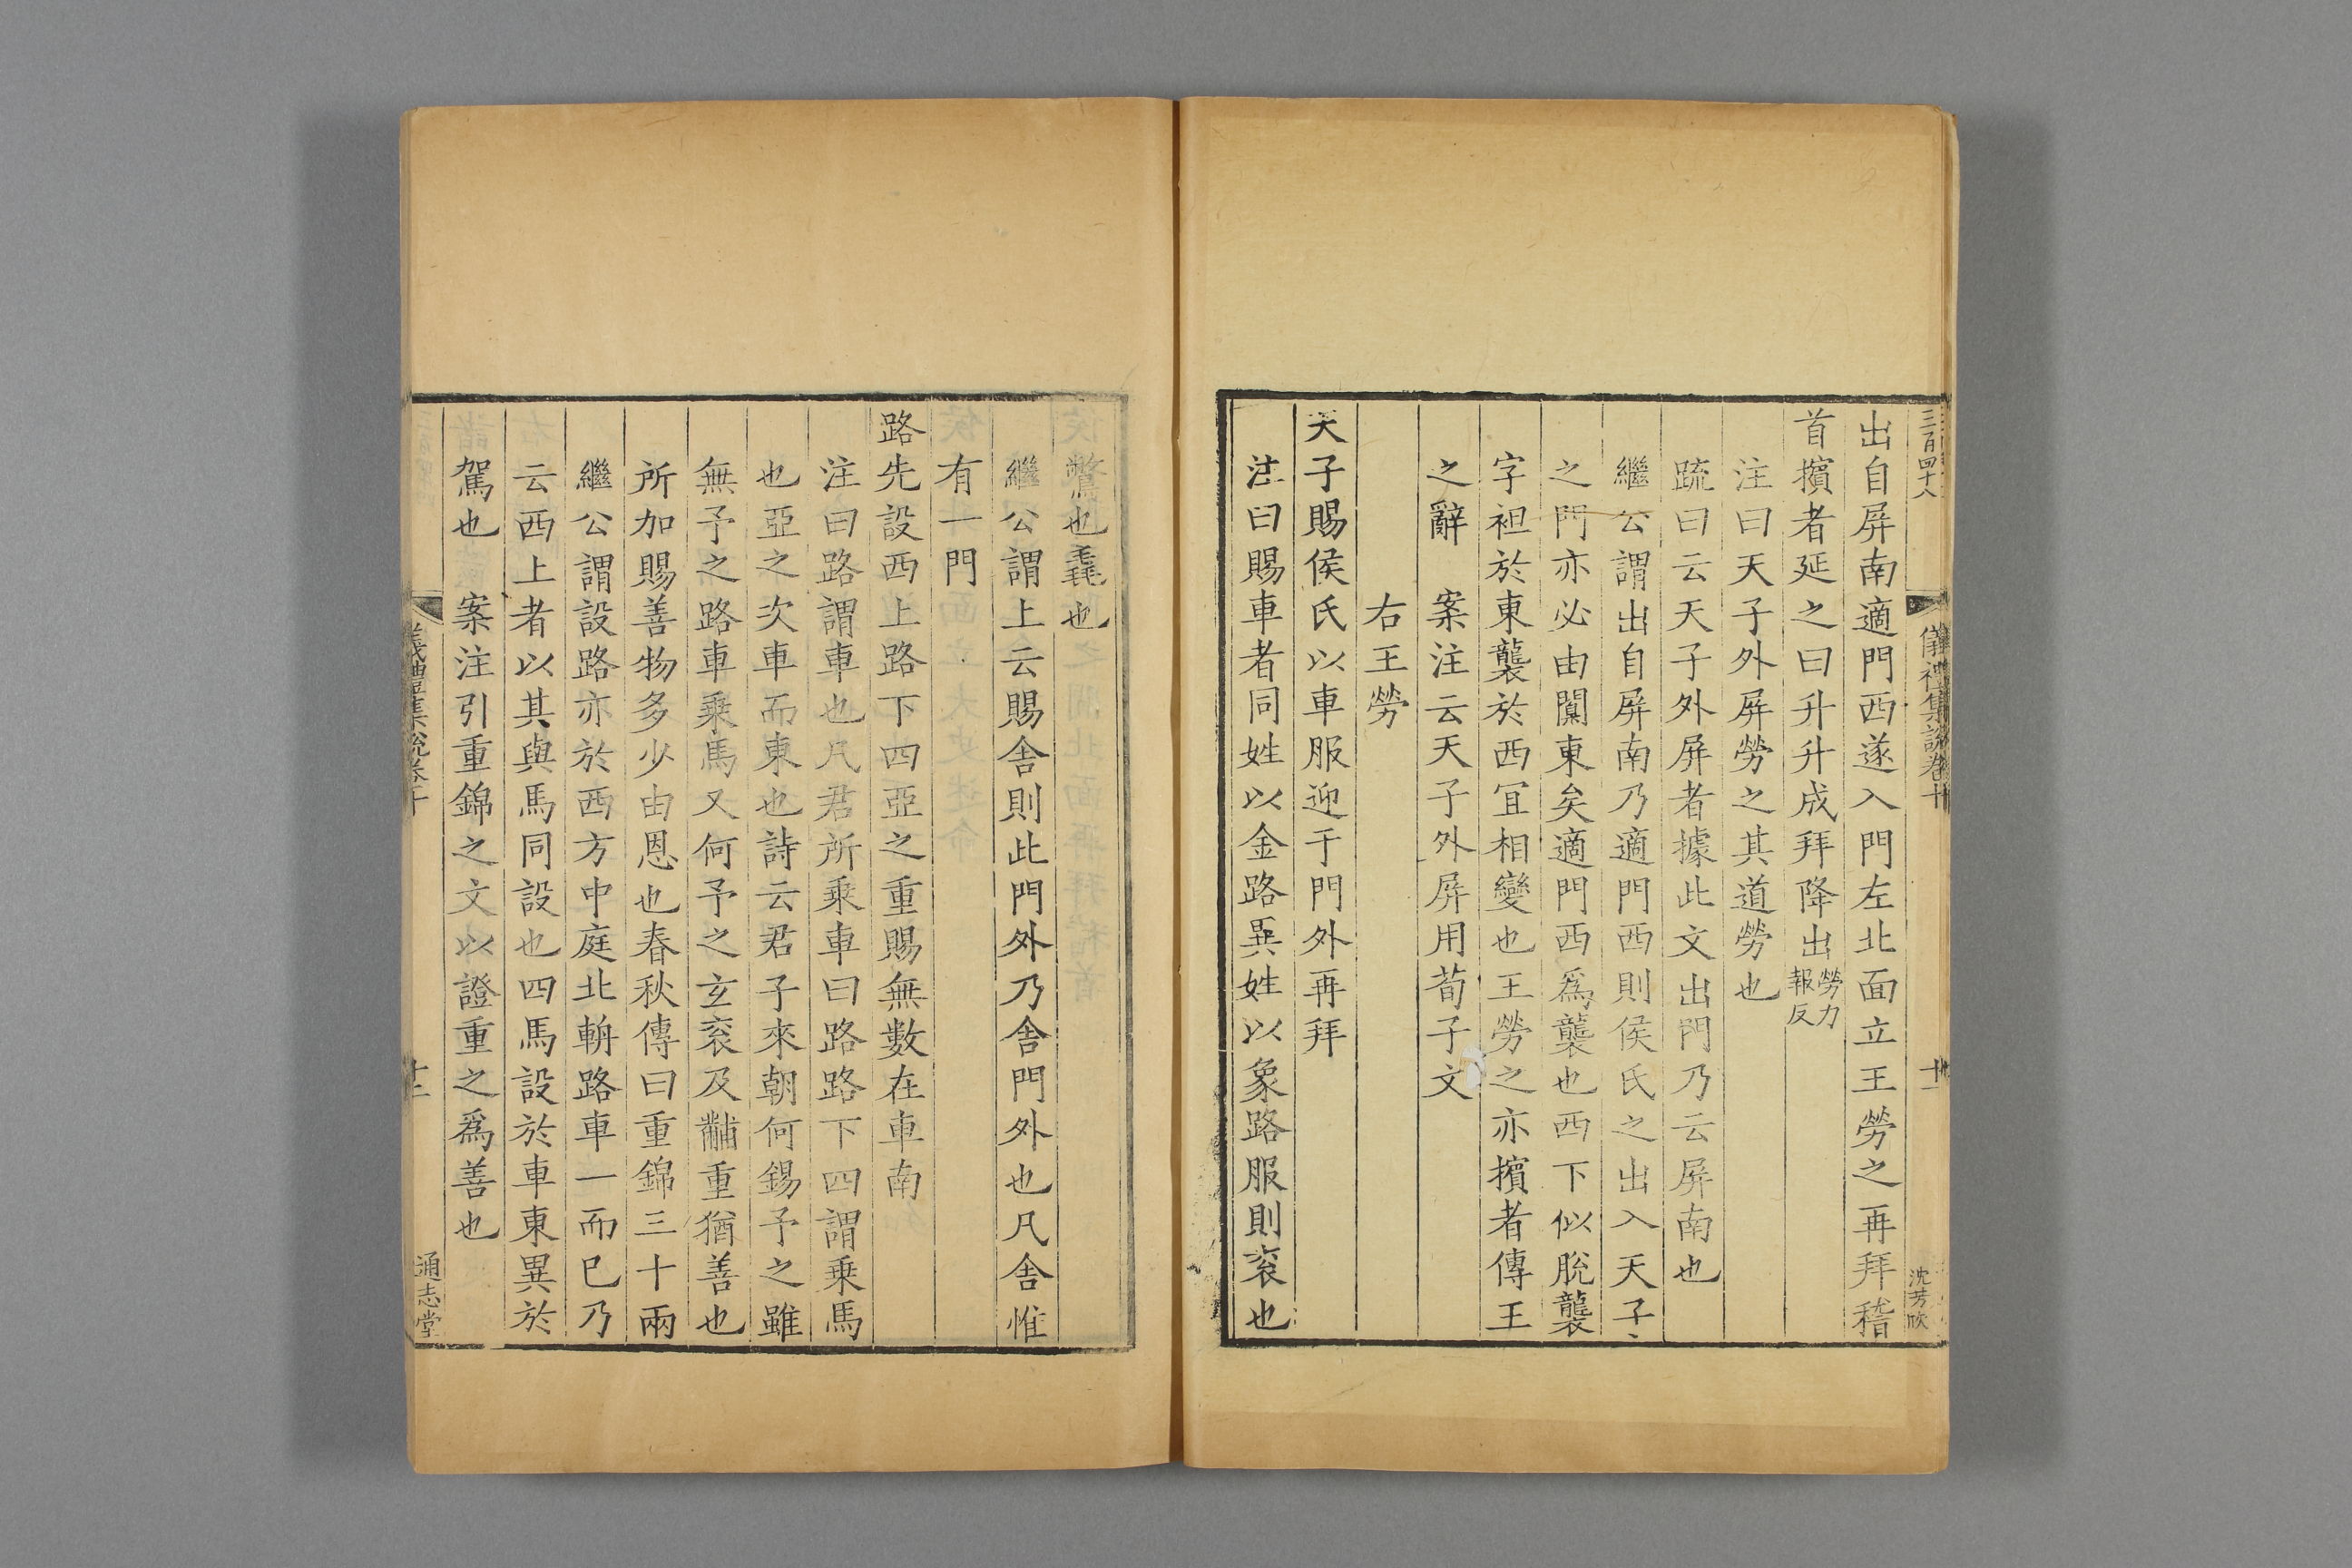 三百四十八
儀禮集說卷十
十一
沈芳欣
出自屏南適門西遂入門左北面立王勞之再拜稽
首擯者延之曰升升成拜降出勞力報反
注曰天子外屏勞之其道勞也
疏曰云天子外屏者據此文出門乃云屏南也
繼公謂出自屏南乃適門西則侯氏之出入天子
之門亦必由闑東矣適門西爲襲也西下似脫襲
字袒於東襲於西宜相變也王勞之亦擯者傳王
之辭 案注云天子外屏用荀子文
右王勞
天子賜侯氏以車服迎于門外再拜
注曰賜車者同姓以金路異姓以象路服則袞也
鷩也毳也
繼公謂上云賜舍則此門外乃舍門外也凡舍惟
有一門
路先設西上路下四亞之重賜無數在車南
注曰路謂車也凡君所乘車曰路路下四謂乘馬
也亞之次車而東也詩云君子來朝何錫予之雖
無予之路車乘馬又何予之玄袞及黼重猶善也
所加賜善物多少由恩也春秋傳曰重錦三十兩
繼公謂設路亦於西方中庭北輈路車一而已乃
云西上者以其與馬同設也四馬設於車東異於
駕也 案注引重錦之文以證重之爲善也
儀禮集說卷十
十二
通志堂